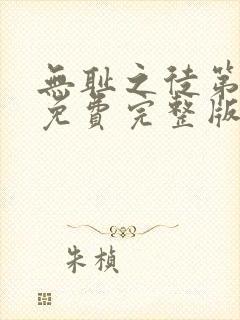 無耻之徒第
免費完整版
朱楨